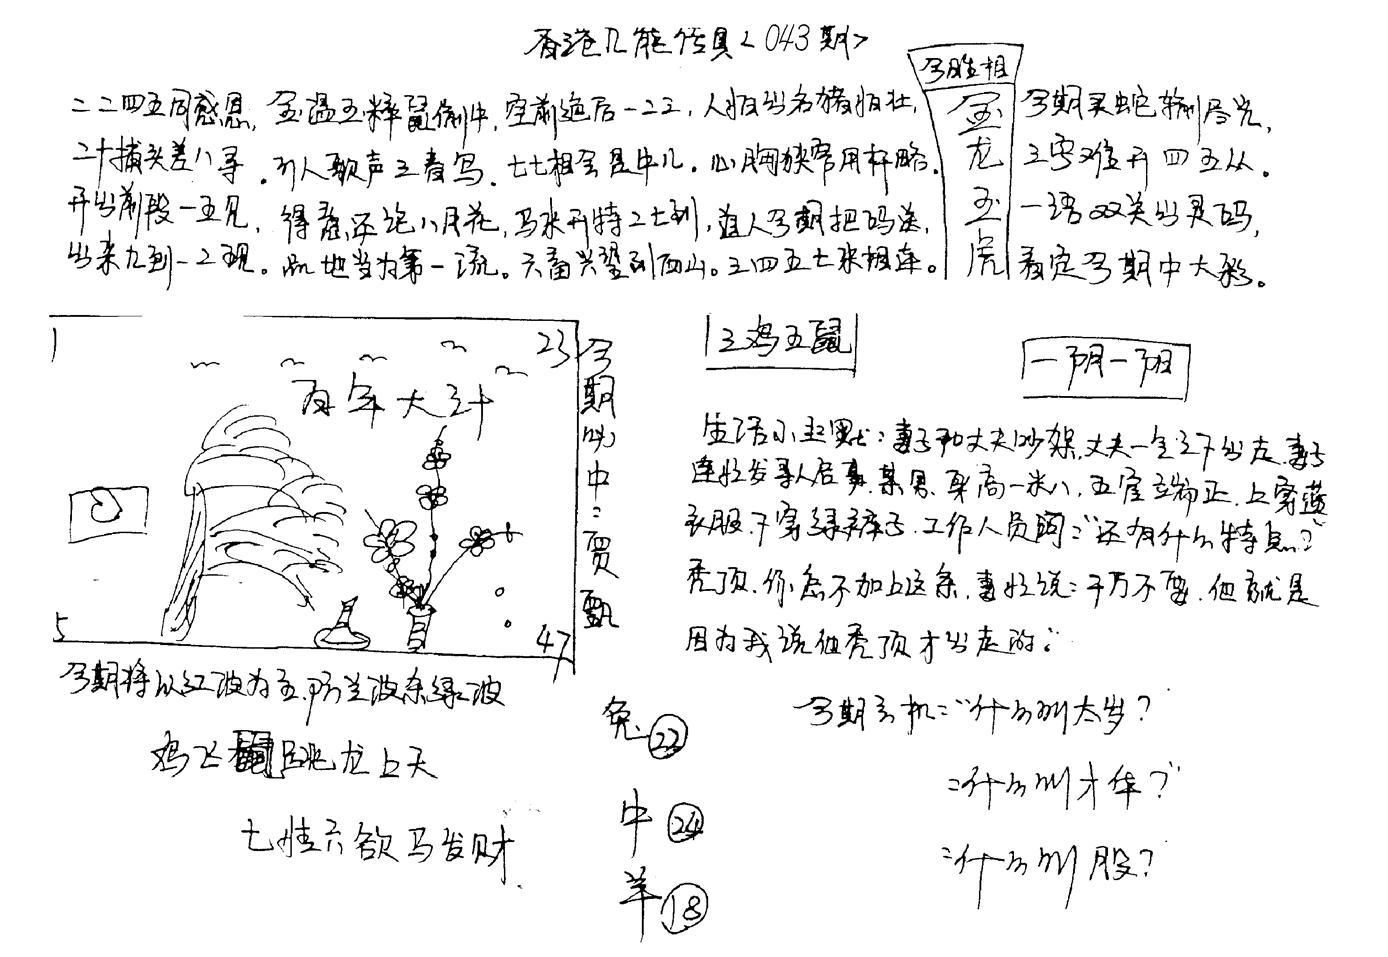 香港几能传真<043期>
今期生相
金龙玉虎
二二四五同感恩,
空前绝后一二三,
今期灵蛇
二十
差八寻。引人歌声三春鸟。七七相会是中儿。心胸狭窄用
三字难开四五从。
开出前段一五见,
八月花,马来开特二七到,
今期把码送,
一语双关出灵码,
出来九到一二现。
地当为第一流。六畜兴望到西山。三四五七来相连。
看定今期中大彩。
1
23
百年大计
5
47
今期必中:贾甄
三鸡五鼠
一阴一阳
生活小幽默:妻子和丈夫吵架,丈夫一气之下出走,妻子
连忙发寻人启事,某男,身高一米八,五官端正,上穿蓝
衣服,下穿绿裤子,工作人员问:"还有什么特点?
秃顶,你怎不加上这条,妻忙说:千万不要,他就是
因为我说他秃顶才出走的。
今期将以红波为主,防兰波杀绿波
鸡飞鼠跳龙上天
七情六欲马发财
兔 22
牛 24
羊 18
今期玄机:"什么叫太岁?
:什么叫才华?
:什么叫股?